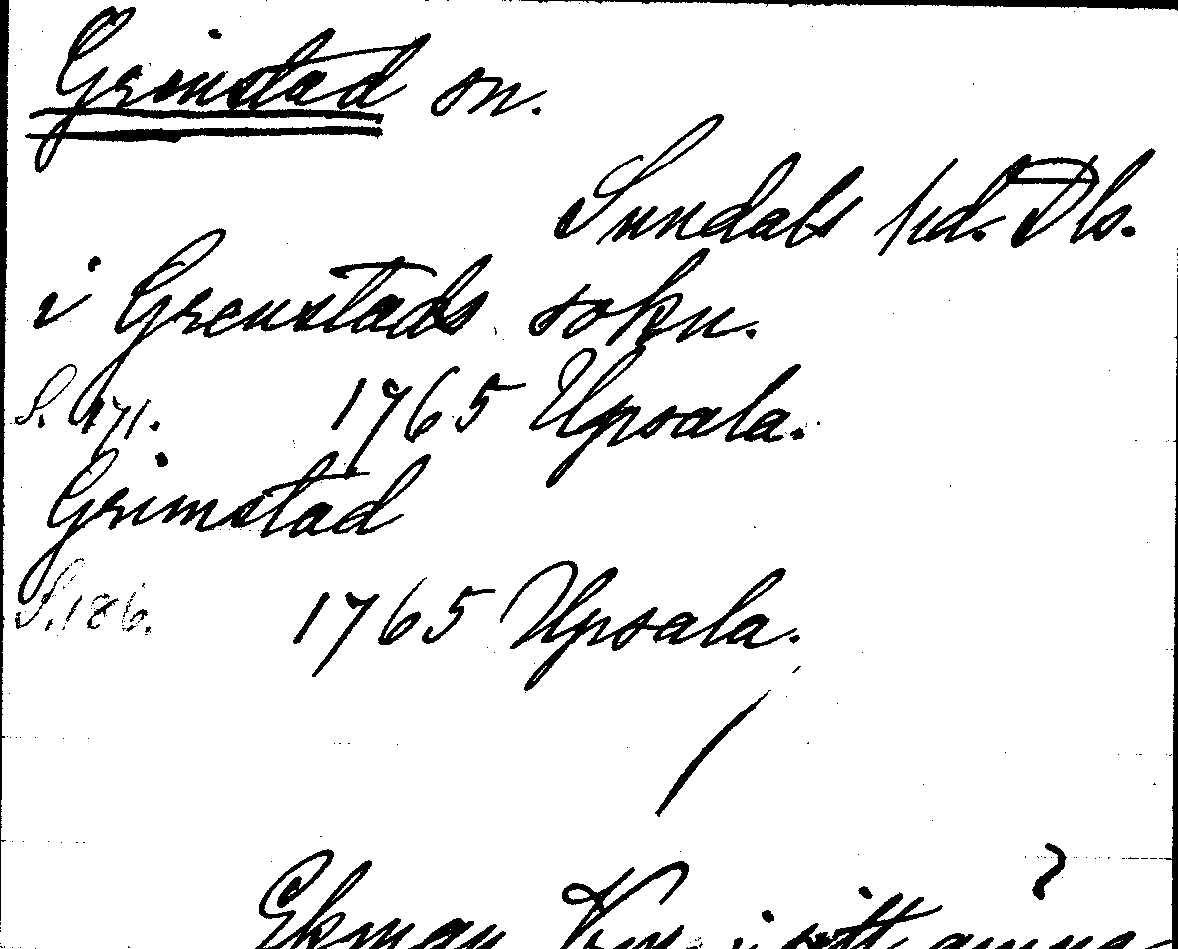 Grinstad sn.
Sundals hd. Dls.
i Grenstads sokn.
S. 171. 1765 Upsala.
Grimstad
S. 186. 1765 Upsala.
Ekman i sitt